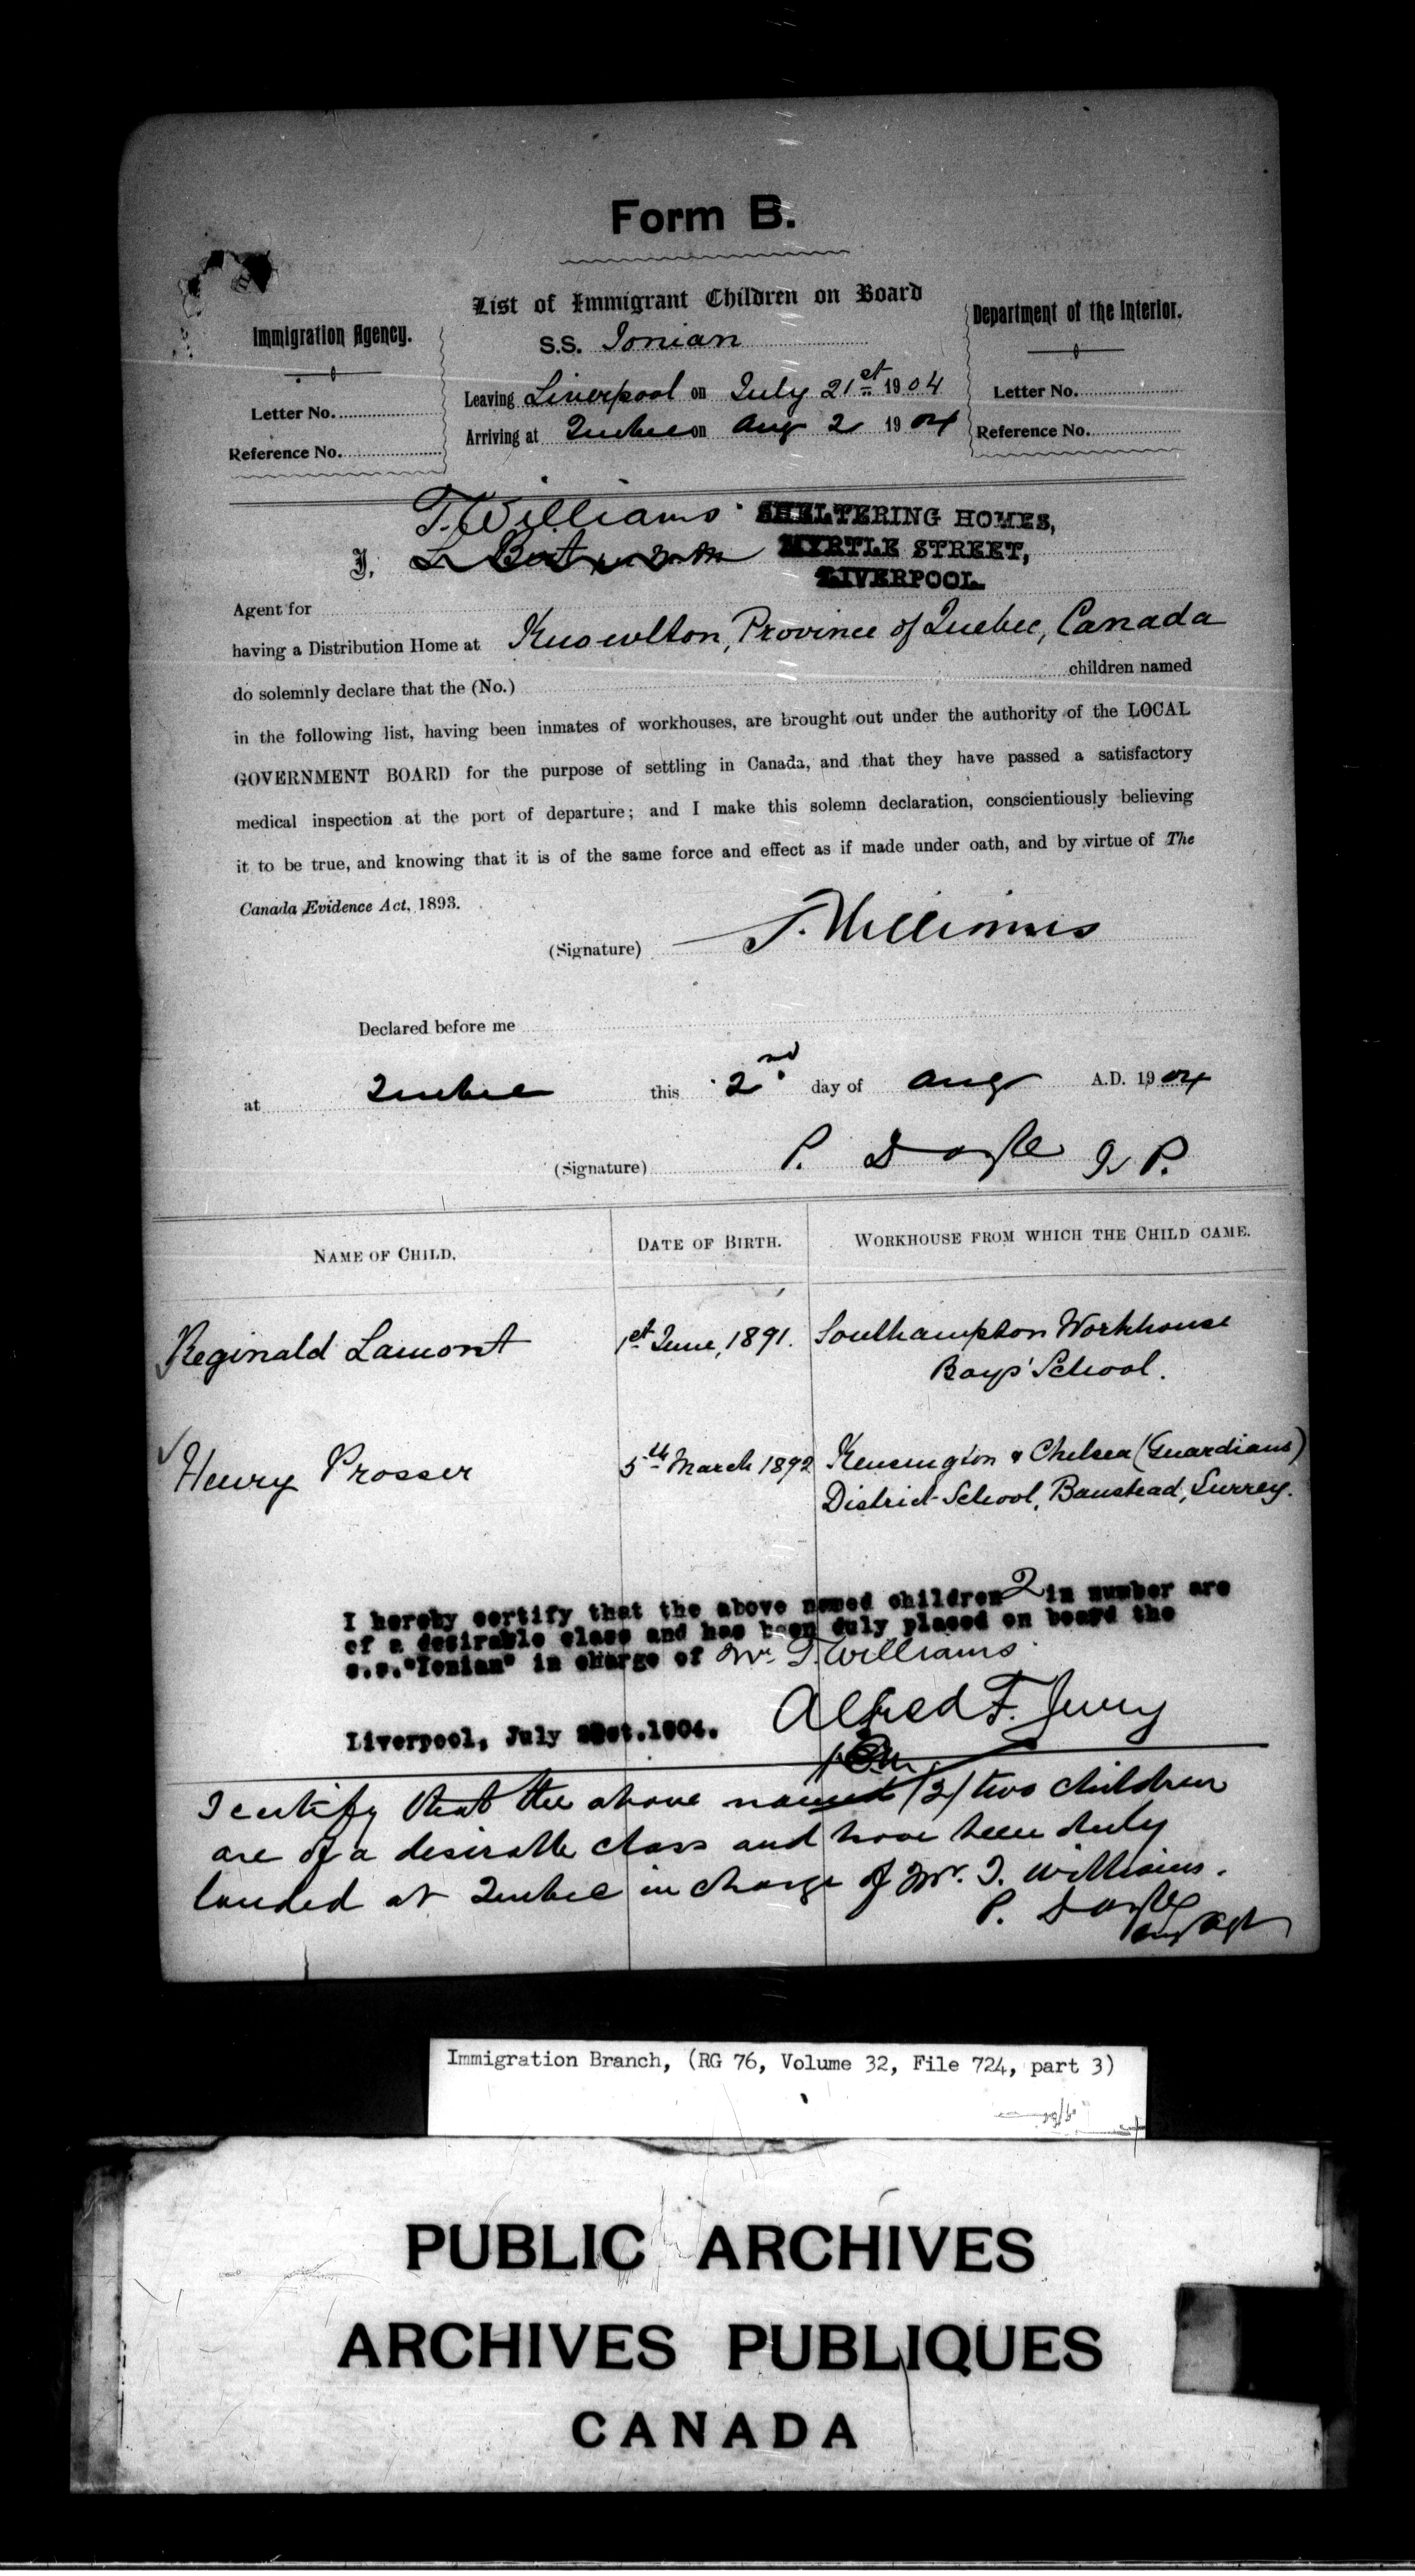 Form B.
List of Immigrant Children on Board
Immigration Agency.
S.S. Ionian
Department of the Interior.
Leaving Liverpool on July 21st 1904
Letter No.
Letter No.
Arriving at Quebec on Aug 2 1904
Reference No.
Reference No.
T. Williams
SHELTERING HOMES,
I,
MYRTLE STREET,
LIVERPOOL.
Agent for
having a Distribution Home at Knowlton, Province of Quebec, Canada
do solemnly declare that the (No.) children named
in the following list, having been inmates of workhouses, are brought out under the authority of the LOCAL
GOVERNMENT BOARD for the purpose of settling in Canada, and that they have passed a satisfactory
medical inspection at the port of departure; and I make this solemn declaration, conscientiously believing
it to be true, and knowing that it is of the same force and effect as if made under oath, and by virtue of The
Canada Evidence Act, 1893.
(Signature) T. Williams
Declared before me
at Quebec this 2nd day of Aug A.D. 1904
(Signature) P. Doyle J.P.
NAME OF CHILD. DATE OF BIRTH. WORKHOUSE FROM WHICH THE CHILD CAME.
Reginald Lamont 1st June, 1891. Southampton Workhouse
Boys' School.
Henry Prosser 5th March 1892 Kensington & Chelsea (Guardians)
District School, Banstead, Surrey.
I hereby certify that the above named children 2 in number are
of a desirable class and has been duly placed on board the
s.s."Ionian" in charge of Mr. T. Williams
Liverpool, July 21st.1904.
Alfred F. Jury
I certify that the above named (2) two children
are of a desirable class and have been duly
landed at Quebec in charge of Mr. T. Williams.
P. Doyle
Agt
Immigration Branch, (RG 76, Volume 32, File 724, part 3)
PUBLIC ARCHIVES
ARCHIVES PUBLIQUES
CANADA